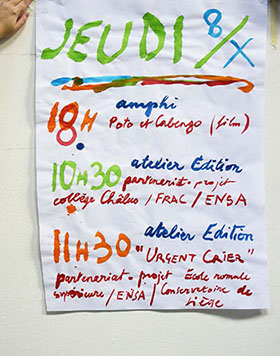 JEUDI 8/X
18H amphi
Poto et Cabengo (film)
10H30 atelier Edition
partenariat. projet
collège Châlus / FRAC / ENSA
11H30 atelier Edition
"URGENT CRIER"
partenariat. projet École normale
supérieure / ENSA / Conservatoire de
Liège